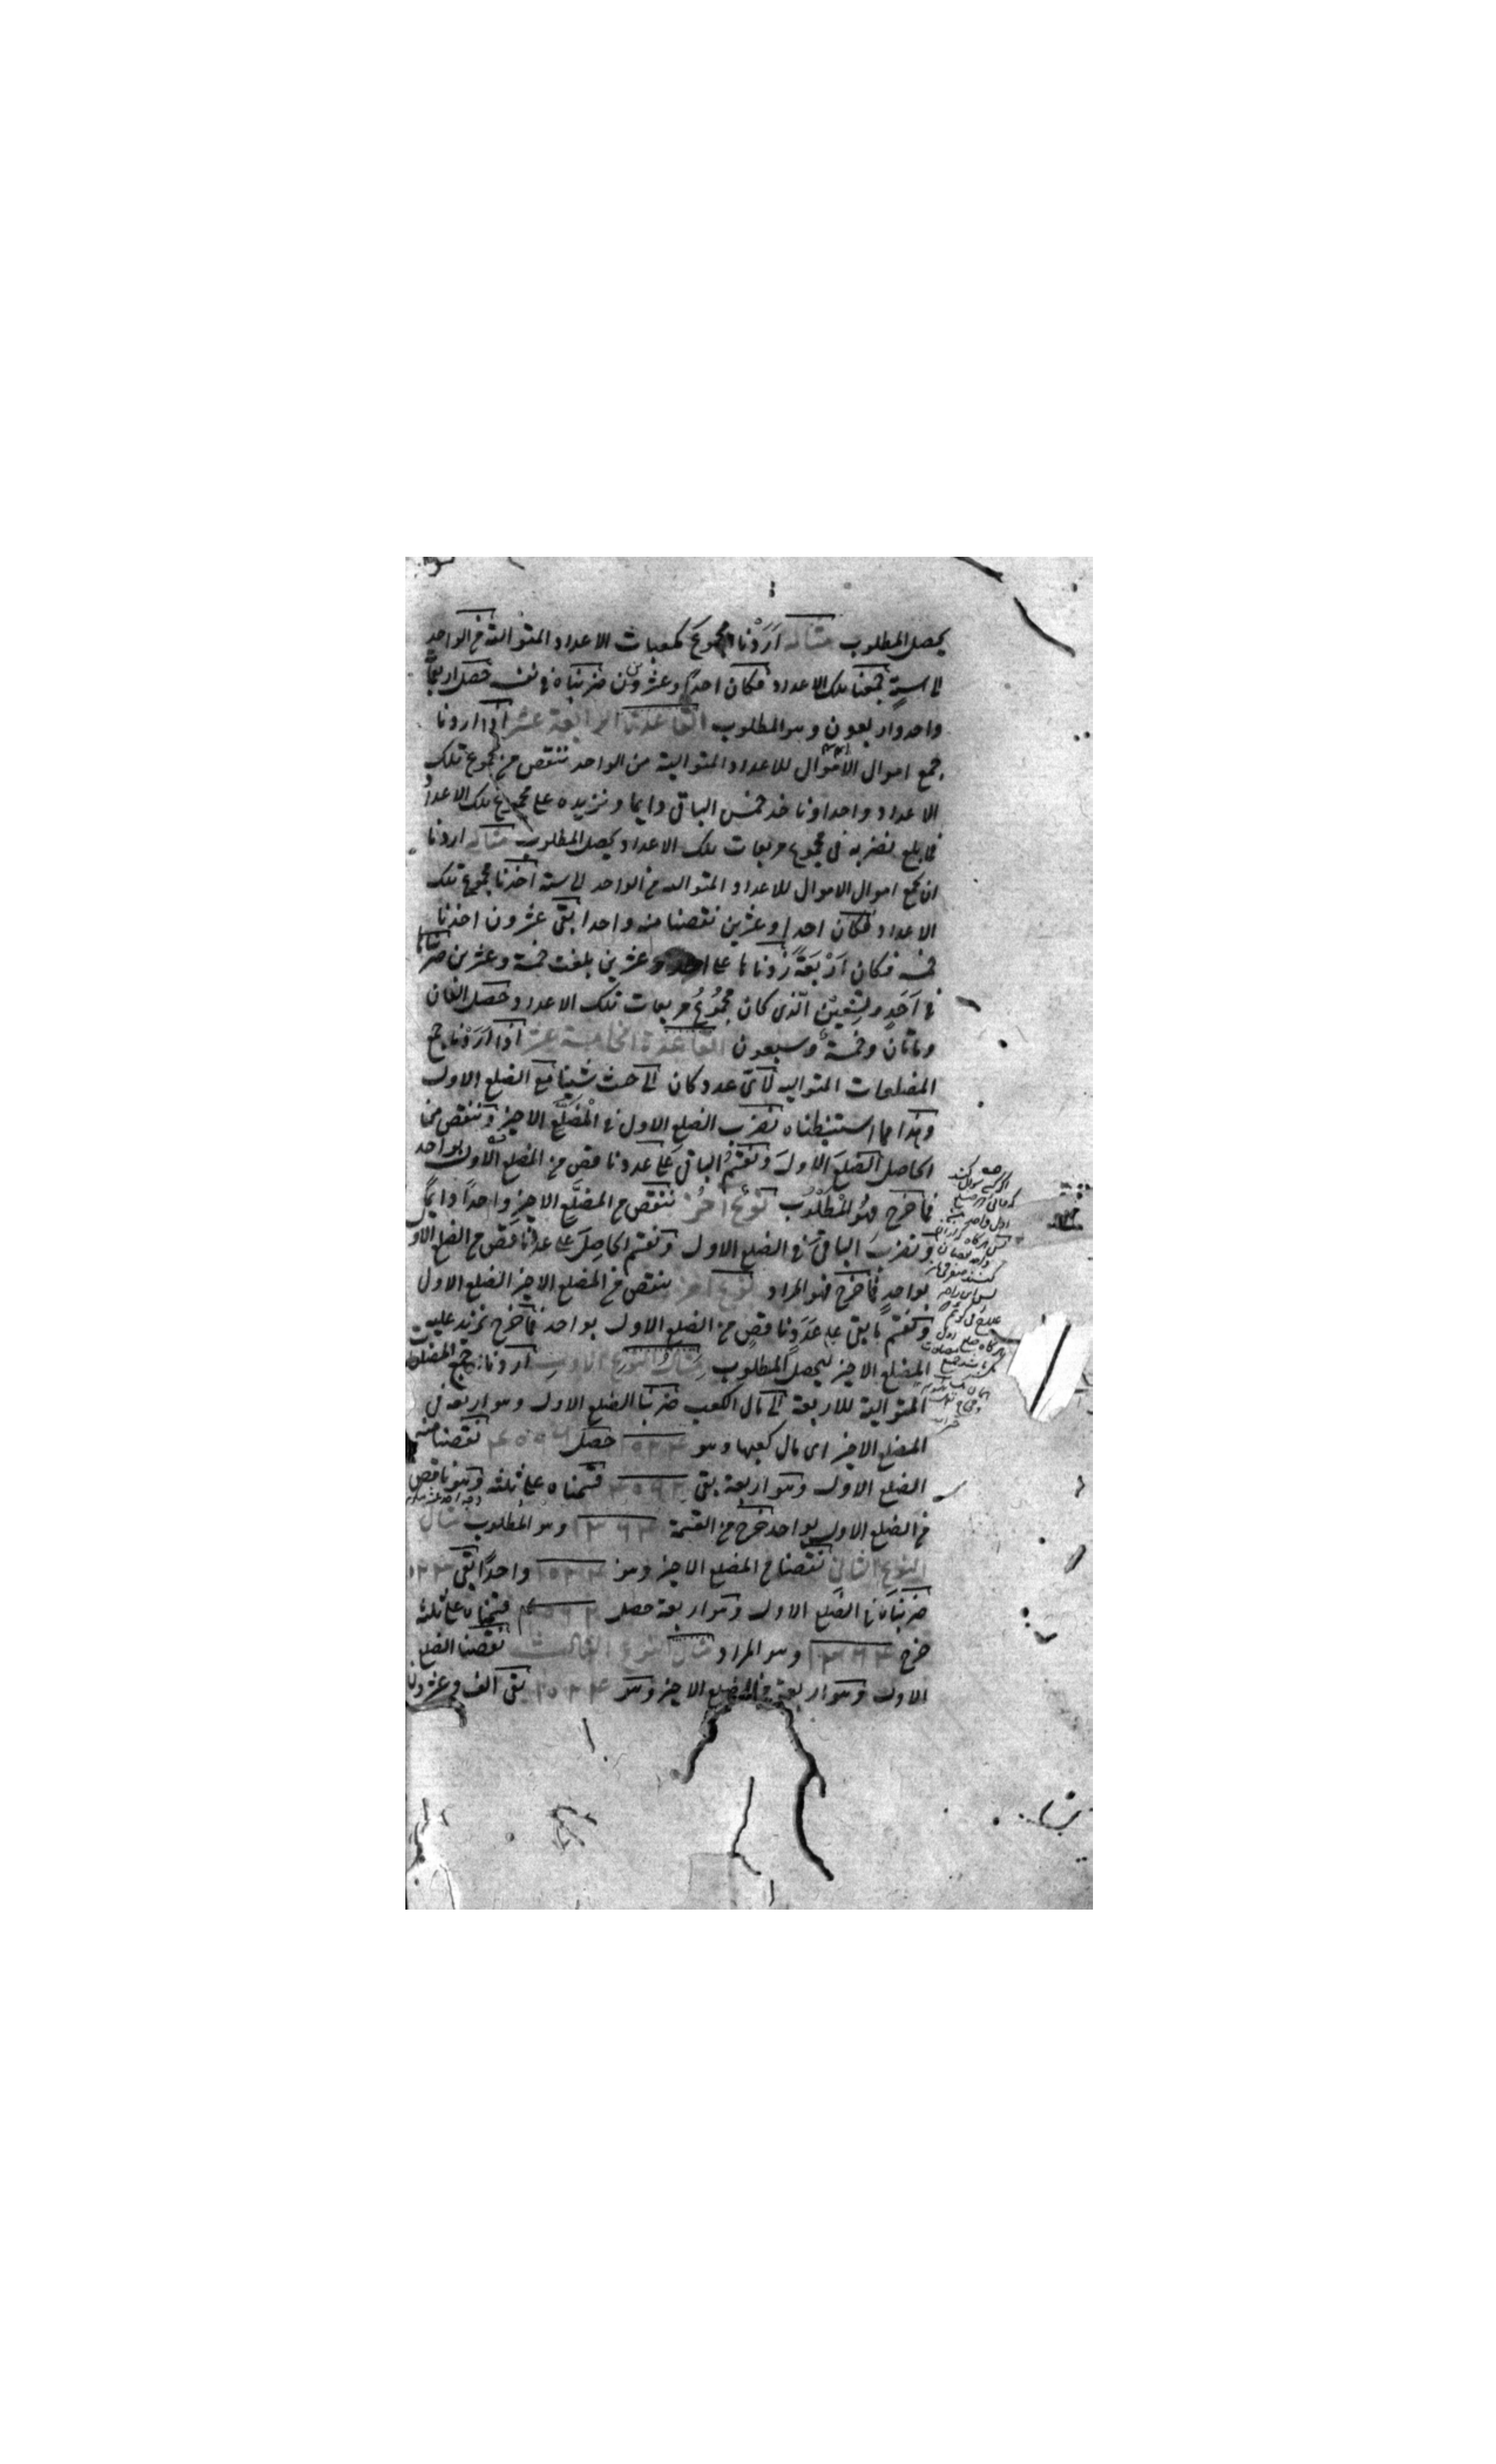 يحصل المطلوب مثاله اَرَدْنا مجموعَ مكعبات الاعداد المتوالية من الواحد
الى ستةٍ جمعنا تلك الاعداد فكان احدًا وعشرون ضربناه فى نفسه حَصَل اربعمائة
واحد واربعون وهو المطلوب القاعدة الرابعة عشر اذا اردنا
جمع اموال الاموال للاعداد المتوالية من الواحد ننقص من مجموع تلك
الاعداد واحدا وناخذ خمس الباقى دايما ونزيده على مجموع تلك الاعداد
فما بلغ نضربه فى مجموع مربعات تلك الاعداد يحصل المطلوب مثاله اردنا
ان نجمع اموال الاموال للاعداد المتواليه من الواحد الى ستة اَخَذْنا مجموع تلك
الاعداد فكان احدا وعشرين نقصنا منه واحدا بَقَى عشرون اخذنا
خمسه فكان اَرْبَعَةً زْدناها على احد وعشرين بلغت خمسة وعشرين ضربناها
فى اَحَدٍ وتِسْعِيْن الّذى كان مَجْمُوعُ مربعات تلك الاعداد حَصَل الفان
ومائتان وخمسة وسبعون القاعدة الخامسة عشر اذا اَرَدْنا جمع
المضلعات المتواليه لاَىّ عدد كان الى حيث شِيْنا مع الضلع الاول
وهذا مما استنبطناه نضرب الضلع الاول فى المُضَلَّع الاخير وننقص من
الحاصل الضلعَ الاولَ ونُقَسِّمُ الباقى عَلى عددٍ ناقصٍ من الضلع الاول بواحد
فما خَرَج فهُو المْطَلْوُب نوعٌ آخرُ ننقص من المضلَّع الاخير واحدًا دايمًا
ونضربَ الباقى فى الضلع الاول ونُقَسِّم الحاصِلَ على عدد ناقص من الضلع الاول
بواحدٍ فما خَرَج فهو المراد نوع آخر ننقص من المضلع الاخير الضلع الاول
ونُقَسِّم ما بقى على عَدَدٍ ناقصٍ من الضلع الاول بواحد فما خَرَج نزيد عليه
المضلع الاخير ليحصل المطلوب مِثالُ النوع الاول اردنا جمع المضلعات
المتوالية للاربعة الى مال الكعب ضربنا الضلع الاول وهو اربعة فى
المضلع الاخير اى مال كعبها وهو ١٠٢٤ حصل ٤٠٩٦ نقصنا منه
الضلع الاول وهو اربعة بقى ٤٠٩٢ قَسَّمناه على ثلثة وهو ناقص
من الضلع الاول بواحد خرج من القسمة ١٣٦٤ وهو المطلوب مثال
النوع الثانى نقصنا من المضلع الاخير وهو ١٠٢٤ واحدًا بَقَى ١٠٢٣
ضربناه فى الضلع الاول وهو اربعة حصل ٤٠٩٢ قسّمناه على ثلثه
خرج ١٣٦٤ وهو المراد مثال النوع الثالث نقصنا الضلع
الاول وهو اربعة من المضلع الاخير وهو ١٠٢٤ بَقَى الف وعشرون